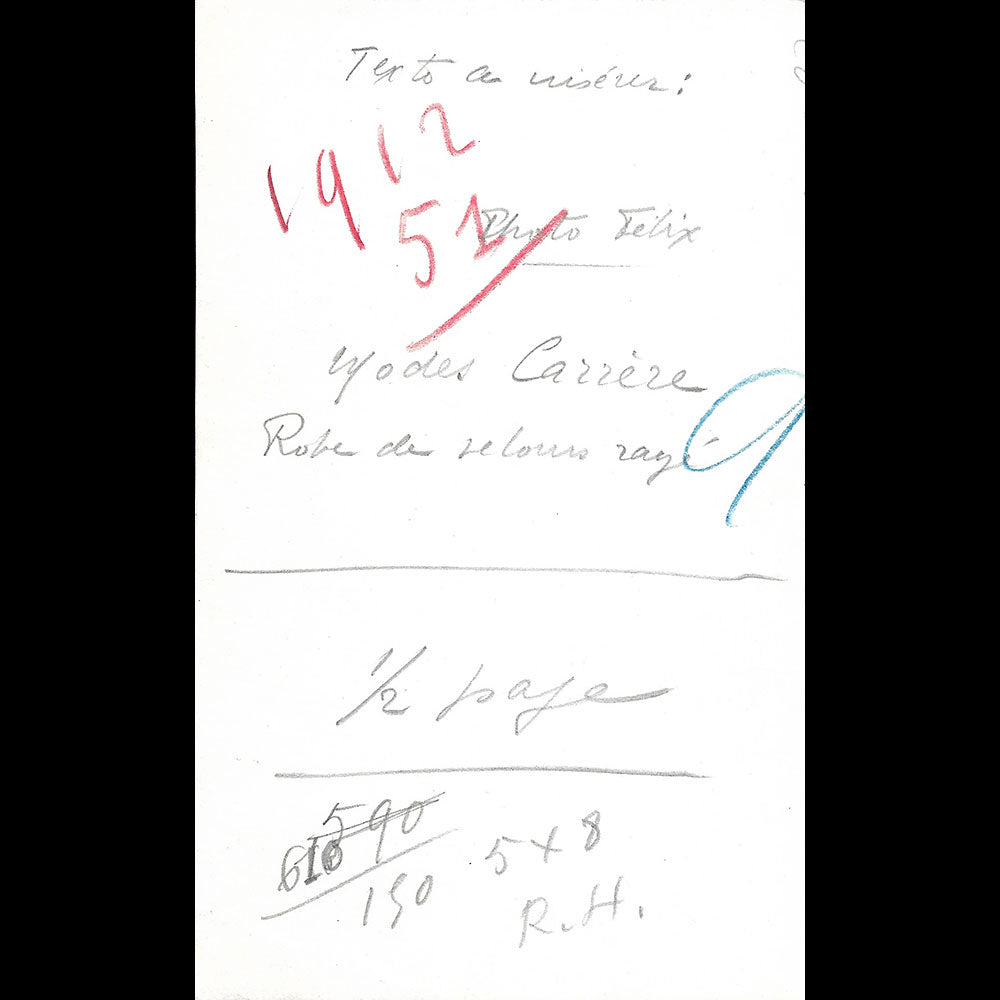 Texte a insérer:
1912
52
Photo Félix
Modes Carrère
Robe de velours rayé
9
1/2 page
590
616
190
5 x 8
R. H.